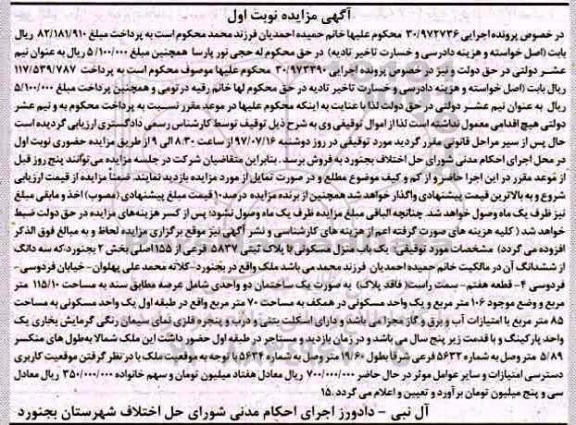 آگهی مزایده نوبت اول
در خصوص پرونده اجرایی ۳۰/۹۷۲۷۳۶ محکوم علیها خانم حمیده احمدیان فرزند محمد محکوم است به پرداخت مبلغ ۸۲/۱۸۱/۹۱۰ ریال
بابت (اصل خواسته و هزینه دادرسی و خسارت تاخیر تادیه) در حق محکوم له حجی نور پارسا همچنین مبلغ ۵/۱۰۰/۰۰۰ ریال به عنوان نیم
عشر دولتی در حق دولت و نیز در خصوص پرونده اجرایی ۳۰/۹۷۳۳۹۰ محکوم علیها موصوف محکوم است به پرداخت ۱۱۷/۵۳۹/۷۸۷
ریال بابت (اصل خواسته و هزینه دادرسی و خسارت تاخیر تادیه در حق محکوم لها خانم رقیه درتومی و همچنین پرداخت مبلغ ۵/۱۰۰/۰۰۰
ریال به عنوان نیم عشر دولتی در حق دولت لذا با عنایت به اینکه محکوم علیها در موعد مقرر نسبت به پرداخت محکوم به و نیم عشر
دولتی هیچ اقدامی معمول نداشته است لذا از اموال توقیفی وی به شرح ذیل توقیف توسط کارشناس رسمی دادگستری ارزیابی گردیده است
حال پس از سیر مراحل قانونی مقرر گردید مورد توقیفی در روز دوشنبه ۹۷/۰۷/۱۶ از ساعت ۸:۳۰ الی ۹ از طریق مزایده حضوری نوبت اول
در محل اجرای احکام مدنی شورای حل اختلاف بجنورد به فروش برسد. بنابراین متقاضیان شرکت در جلسه مزایده می‌توانند پنج روز قبل
از موعد مقرر در این اجرا حاضر و از کم و کیف موضوع مطلع و در صورت تمایل از مورد مزایده بازدید نمایند. ضمناً مزایده از قیمت ارزیابی
شروع و به بالاترین قیمت پیشنهادی واگذار خواهد شد همچنین از برنده مزایده درصد۱۰ قیمت مبلغ پیشنهادی (مصوب) اخذ و مابقی مبلغ
نیز ظرف یک ماه وصول خواهد شد. چنانچه الباقی مبلغ مزایده ظرف یک ماه وصول نشود؛ پس از کسر هزینه‌های مزایده در حق دولت ضبط
خواهد شد (کلیه هزینه های صورت گرفته اعم از هزینه های کارشناسی و نشر آگهی نیز موقع برگزاری مزایده لحاظ و به مبالغ فوق الذکر
افزوده می گردد) مشخصات مورد توقیفی: یک باب منزل مسکونی با پلاک ثبتی ۵۸۳۷ فرعی از ۱۵۵ اصلی بخش ۲ بجنورد، که سه دانگ
از ششدانگ آن در مالکیت خانم حمیده احمدیان فرزند محمد می باشد ملک واقع در بجنورد-کلاته محمد علی پهلوان- خیابان فردوسی-
فردوسی ۴- قطعه هفتم- سمت راست( فاقد پلاک) به صورت یک ساختمان دو واحدی شامل عرصه مطابق سند به مساحت ۱۱۵/۱۰ متر
مربع و وضع موجود ۱۰۶ متر مربع و یک واحد مسکونی در همکف به مساحت ۷۰ متر مربع واقع در طبقه اول یک واحد مسکونی به مساحت
۸۵ متر مربع با امتیازات آب و برق و گاز مجزا می باشد و دارای اسکلت بتنی و درب و پنجره فلزی نمای سیمان رنگی گرمایش بخاری یک
واحد پارکینگ و با قدمت زیر پنج سال می باشد و در زمان بازدید و مستاجر در طبقه اول حضور داشت این ملک شمالا به‌طول های منکسر
۵/۸۹ متر وصل به شماره ۵۶۳۲ فرعی شرقا بطول ۱۹/۶۰ متر وصل به شماره ۱۵۶۳۴ توجه به موقعیت ملک با در نظر گرفتن موقعیت کاربری
دسترسی امتیازات و سایر عوامل موثر در حال حاضر ۷۰۰/۰۰۰/۰۰۰ ریال معادل هفتاد میلیون تومان و سهم خانواده ۳۵۰/۰۰۰/۰۰۰ ریال معادل
سی و پنج میلیون تومان برآورد و تعیین و اعلام می گردد. ۱۵
آل نبی - دادورز اجرای احکام مدنی شورای حل اختلاف شهرستان بجنورد